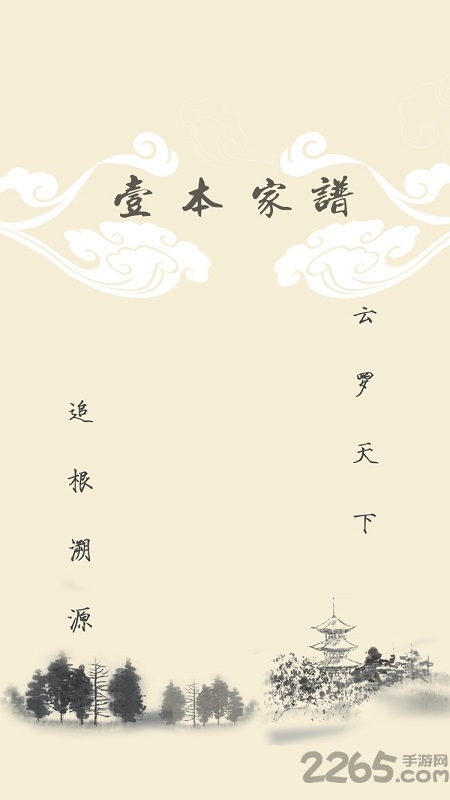 壹本家譜
云罗天下
追根溯源
2265.com
手游网